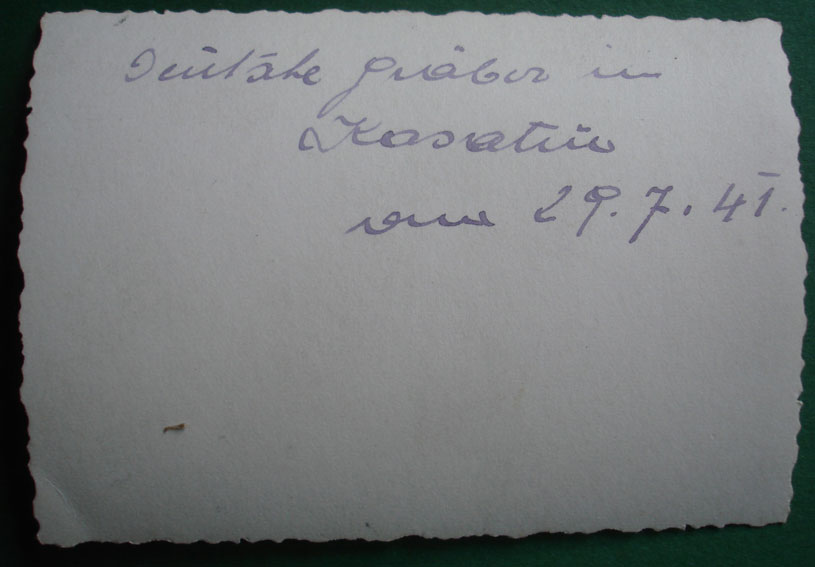 Deutsche Gräber in
Kasatin
am 29.7.41.